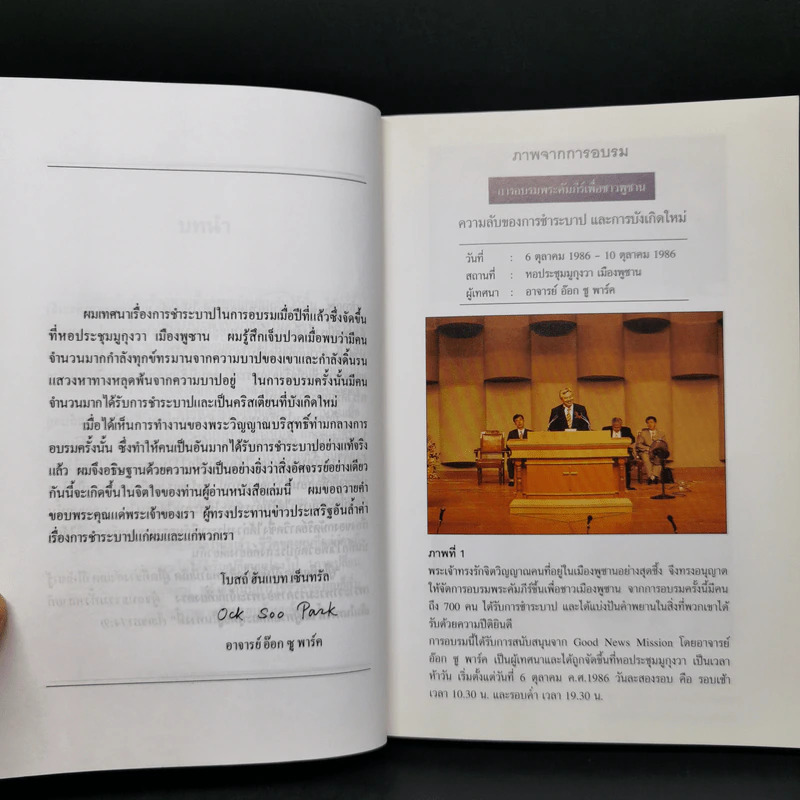 ผมเทศนาเรื่องการชำระบาปในการอบรมเมื่อปีที่แล้วซึ่งจัดขึ้น
ที่หอประชุมมูกุงวา เมืองพูซาน ผมรู้สึกเจ็บปวดเมื่อพบว่ามีคน
จำนวนมากกำลังทุกข์ทรมานจากความบาปของเขาและกำลังดิ้นรน
แสวงหาทางหลุดพ้นจากความบาปอยู่ ในการอบรมครั้งนั้นมีคน
จำนวนมากได้รับการชำระบาปและเป็นคริสเตียนที่บังเกิดใหม่
เมื่อได้เห็นการทำงานของพระวิญญาณบริสุทธิ์ท่ามกลางการ
อบรมครั้งนั้น ซึ่งทำให้คนเป็นอันมากได้รับการชำระบาปอย่างแท้จริง
แล้ว ผมจึงอธิษฐานด้วยความหวังเป็นอย่างยิ่งว่าสิ่งอัศจรรย์อย่างเดียว
กันนี้จะเกิดขึ้นในจิตใจของท่านผู้อ่านหนังสือเล่มนี้ ผมขอถวายคำ
ขอบพระคุณแด่พระเจ้าของเรา ผู้ทรงประทานข่าวประเสริฐอันล้ำค่า
เรื่องการชำระบาปแก่ผมและแก่พวกเรา
โบสถ์ ฮันแบท เซ็นทรัล
Ock Soo Park
อาจารย์ อ๊อก ซู พาร์ค
ภาพจากการอบรม
การอบรมพระคัมภีร์เพื่อชาวพูซาน
ความลับของการชำระบาป และการบังเกิดใหม่
วันที่ : 6 ตุลาคม 1986 - 10 ตุลาคม 1986
สถานที่ : หอประชุมมูกุงวา เมืองพูซาน
ผู้เทศนา : อาจารย์ อ๊อก ซู พาร์ค
ภาพที่ 1
พระเจ้าทรงรักจิตวิญญาณคนที่อยู่ในเมืองพูซานอย่างสุดซึ้ง จึงทรงอนุญาต
ให้จัดการอบรมพระคัมภีร์ขึ้นเพื่อชาวเมืองพูซาน จากการอบรมครั้งนี้มีคน
ถึง 700 คน ได้รับการชำระบาป และได้แบ่งปันคำพยานในสิ่งที่พวกเขาได้
รับด้วยความปีติยินดี
การอบรมนี้ได้รับการสนับสนุนจาก Good News Mission โดยอาจารย์
อ๊อก ซู พาร์ค เป็นผู้เทศนาและได้ถูกจัดขึ้นที่หอประชุมมูกุงวา เป็นเวลา
ห้าวัน เริ่มตั้งแต่วันที่ 6 ตุลาคม ค.ศ.1986 วันละสองรอบ คือ รอบเช้า
เวลา 10.30 น. และรอบค่ำ เวลา 19.30 น.